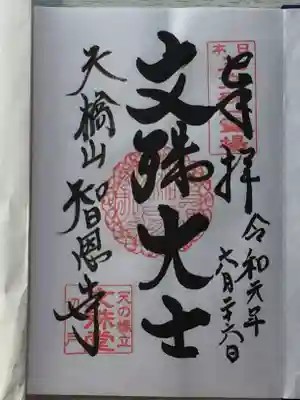 奉拝
令和元年
六月二十六日
文殊大士
天橋山智恩寺
日本
天の橋立
文殊堂